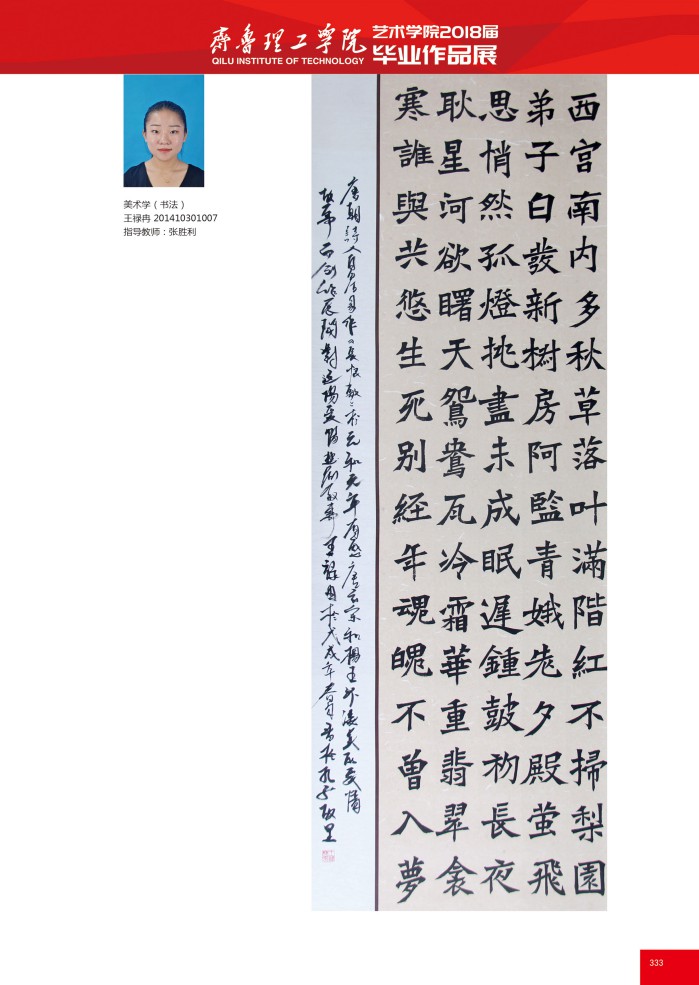 齊魯理工學院
QILU INSTITUTE OF TECHNOLOGY
艺术学院2018届
毕业作品展
美术学（书法）
王禄冉 201410301007
指导教师：张胜利
西宫南内多秋草落叶滿階紅不掃梨園
弟子白發新樹房阿監青娥老夕殿萤飛
思悄然孤燈挑盡未成眠遲鍾皷初長夜
耿星河欲曙天鴛鴦瓦冷霜華重翡翠衾
寒誰與共悠生死别經年魂魄不曾入夢
唐朝詩人白居易作《長恨歌》於元和元年有感唐玄宗和楊玉環淒美的愛情
故事而創作 王禄冉於戊戌年春月書於孔子故里
333